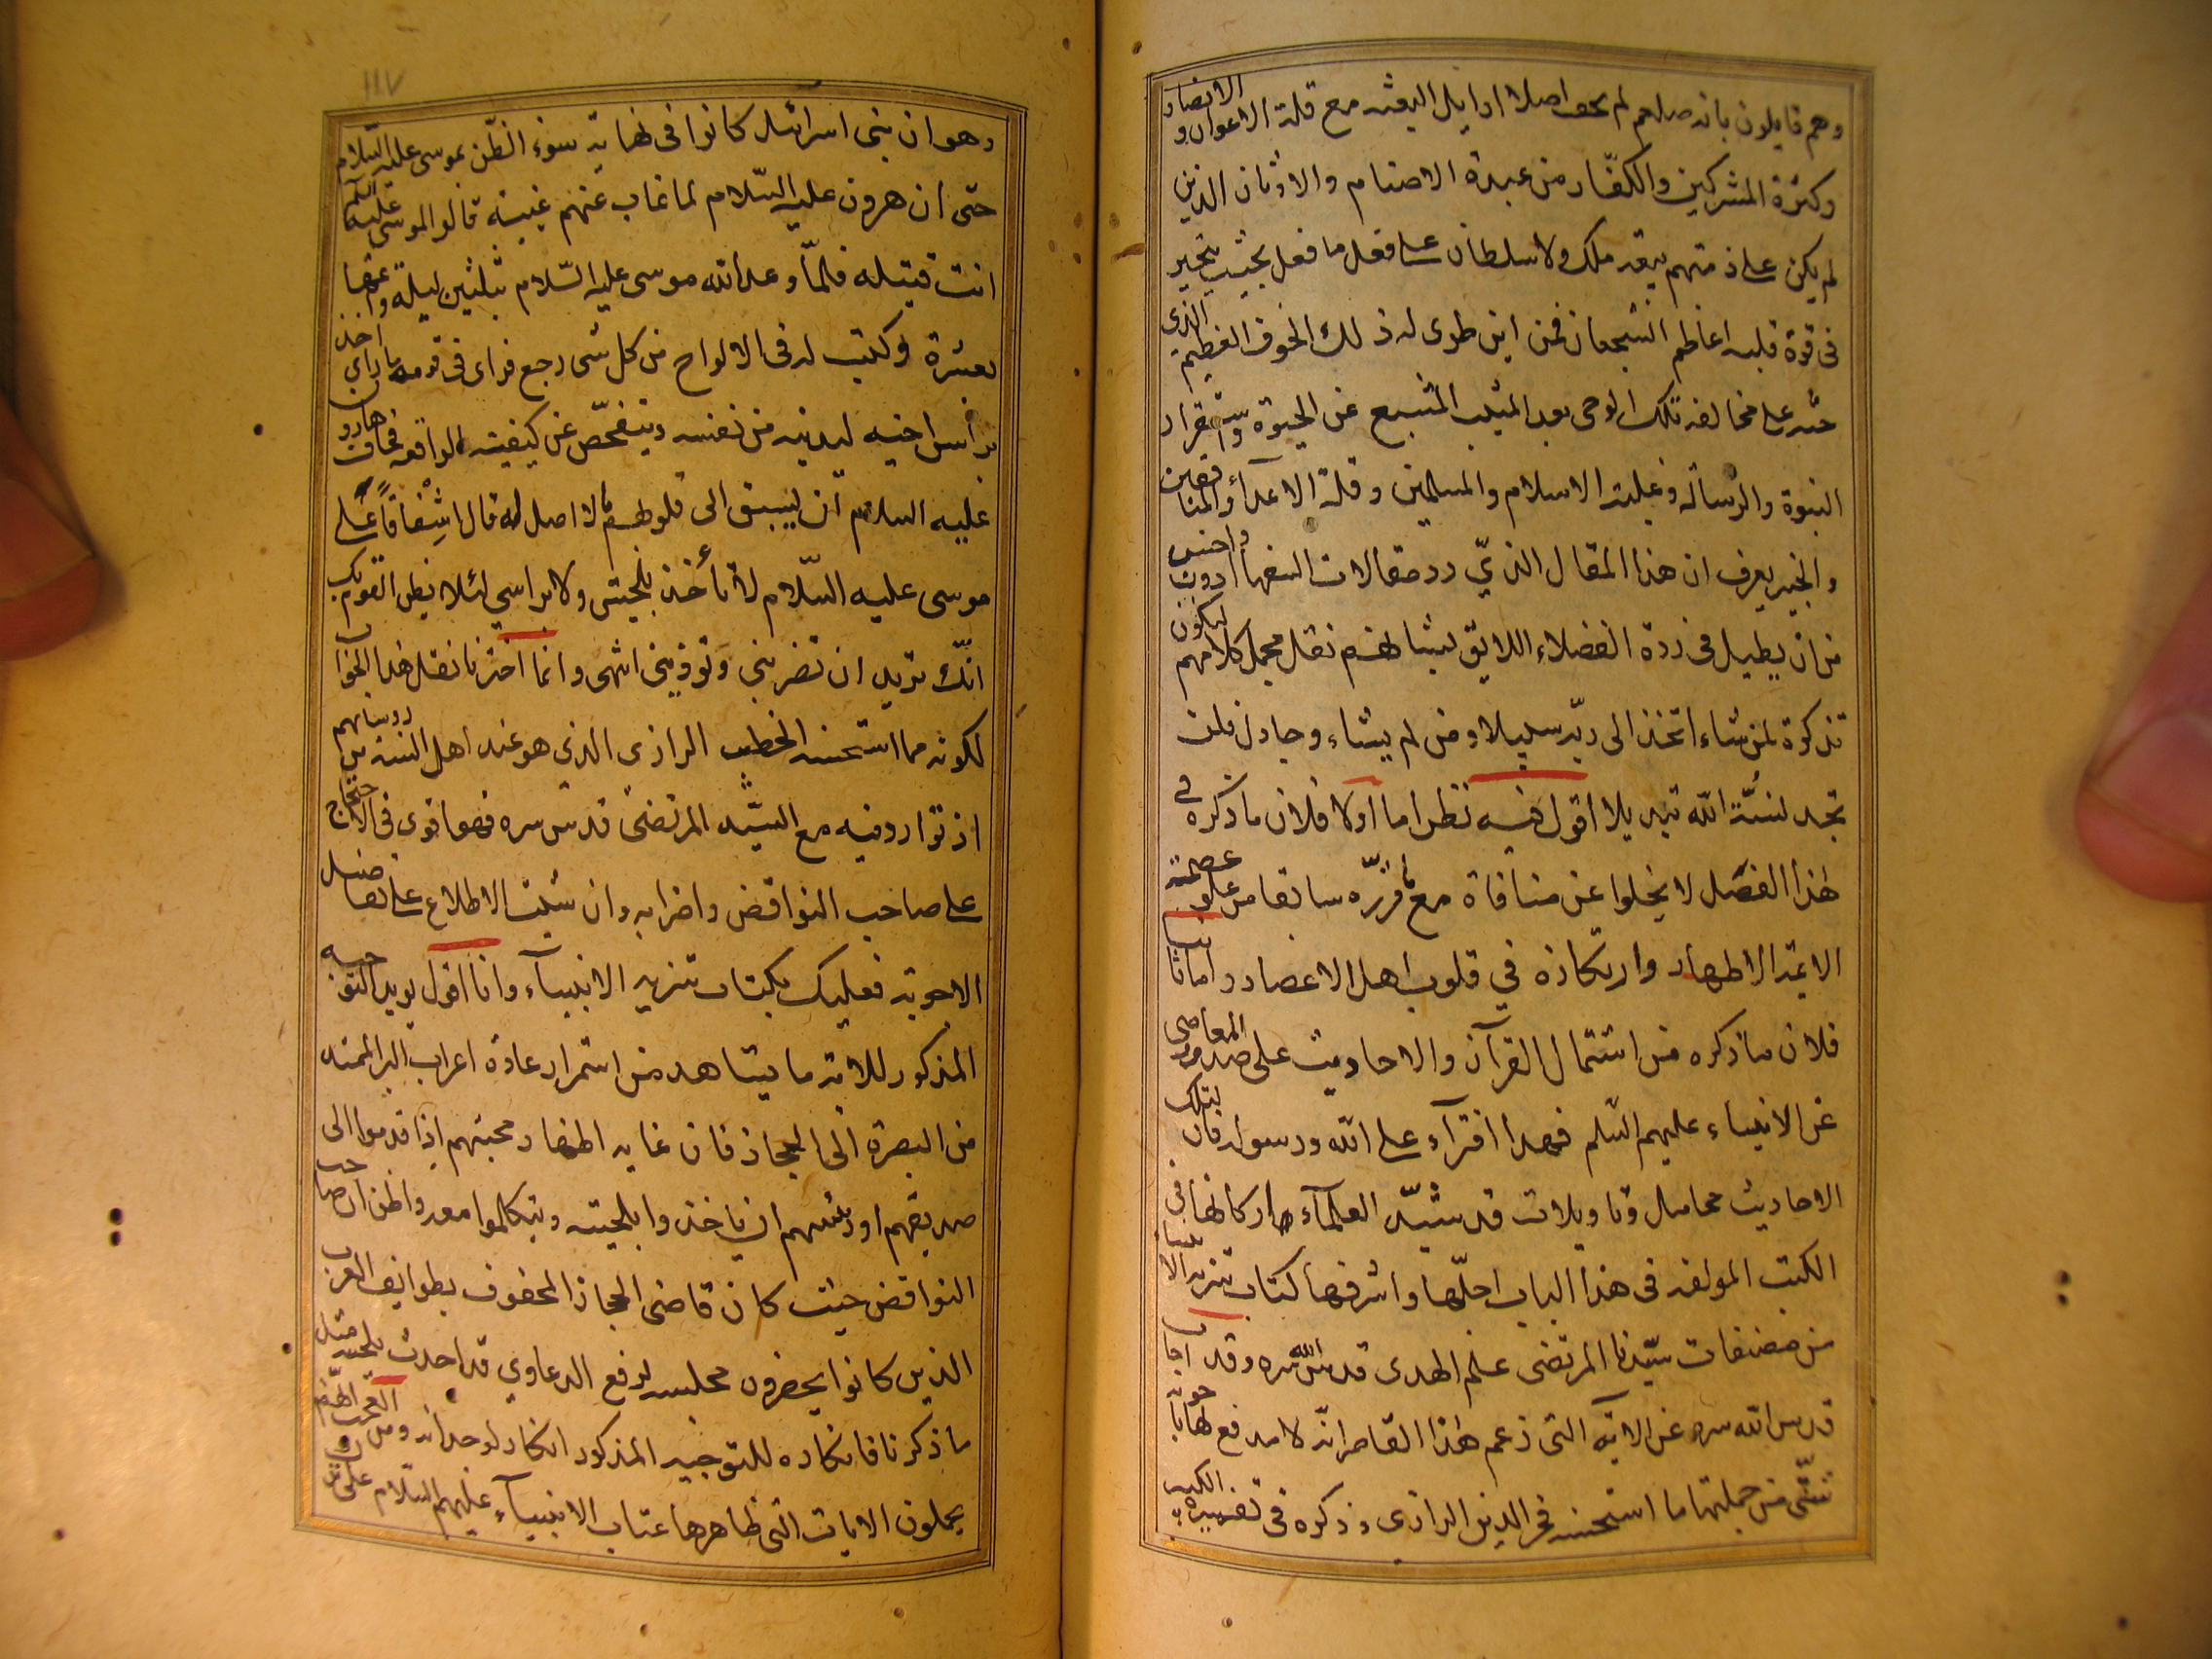 وهم قايلون بانه صلعم لم يخف اصلا اوايل البعثه مع قلة الاعوان والانصار
وكثرة المشركين والكفّار من عبدة الاصنام والاوثان الذين
لم يكن على ذمتهم بيعة ملك ولا سلطان على فعل ما فعل بحيث يتحير
فى قوة قلبه اعاظم الشجعان فمن اين طرى له ذلك الخوف العظيم الذى
حثه على مخالفة تلك الوحى بعد الشيب المشبع عن الحيوة واستقرار
النبوة والرسالة وغلبة الاسلام والمسلمين وقلة الاعدآء والمنافقين
والخبير يعرف ان هذا المقال الذيّ ردد مقالات السفهاء ادون واخس
من ان يطيل فى رده الفضلاء اللايق بشانهم نقل مجمل كلامهم ليكون
تذكرة لمن شاء اتخذ الى ربّه سبيلا ومن لم يشاء وجادل فلن
تجد لسنّة الله تبديلا اقول فيه نظر اما اولا فلان ما ذكره فى
هذا الفصل لا يخلوا عن منافاة مع ما قرّره سابقا من علو عصمة
الايمة الاطهار وارتكازه في قلوب اهل الاعصار واما ثانيا
فلان ما ذكره من اشتمال القرآن والاحاديث على صدور المعاصى
عن الانبياء عليهم السّلم فهذا افترآء على الله ورسوله فان لتلك
الاحاديث محامل وتاويلات قد شيّد العلمآء اركانها فى
الكتب المولفه فى هذا الباب اجلّها واشرفها كتاب تنزيه الانبيا
من مصنفات سيّدنا المرتضى علم الهدى قدس الله سره وقد اجاب
قدس الله سره عن الاية التى زعم هذا القاصر انّه لا مدفع لها باجوبة
شتّى من جملتها ما استحسنه فخر الدين الرازي وذكره فى تفسيره الكبير
١١٧
وهو ان بنى اسرائيل كانوا فى نهاية سوء الظّن بموسى عليه السّلام
حتى ان هرون عليه السّلام لما غاب عنهم غيبة قالوا لموسى عليه السلم
انت قتيله فلمّا وعد الله موسى عليه السّلام ثلثين ليلة واتمها
بعشرة وكتب له فى الالواح من كل شى رجع فراى فى قومه ما راى اخذ
براس اخيه ليدنيه من نفسه ويتفحّص عن كيفيته الواقعه فخاف هارون
عليه السلام ان يسبق الى قلوبهم ما لا اصل له قال اشفاقاً على
موسى عليه السّلام لا تأخذ بلحيتى ولا براسي لئلا يظن القوم بك
انّك تريد ان تضربنى وتوذينى انتهى وانما اخترنا نقل هذا الجواب
لكونه مما استحسنه الخطيب الرازى الذي هو عند اهل السنة من روسايهم
اذ توارد فيه مع السّيد المرتضى قدس سره فهو اقوى فى الاحتجاج
على صاحب النواقض واضرابه وان شئت الاطلاع على تفاصيل
الاجوبة فعليك بكتاب تنزيه الانبيآء وانا اقول يويد التوجيه
المذكور للاية ما يشاهد من استمرار عادة اعراب البر الممتد
من البصرة الى الحجاز فان غاية اظهار محبتهم اذا قدموا الى
صديقهم او رئيسهم ان ياخذوا بلحيته ويتكلموا معه واظن ان صاحب
النواقض حيث كان قاضى الحجاز المحفوف بطوايف العرب
الذين كانوا يحضرون مجلسه لرفع الدعاوي قد احدث بلحيته مثل
ما ذكرنا فانكاره للتوجيه المذكور انكار لوجدانه ومن العجب انهم
يحملون الايات التى ظاهرها عتاب الانبيآء عليهم السّلام على ان